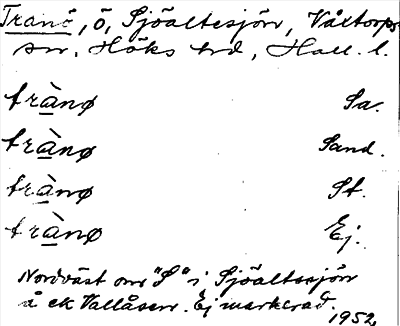 Tranö, ö, Sjöaltesjön, Våxtorps
sn, Höks hd, Hall. l.
trànø Sa.
trànø Sand.
trànø St.
trànø Ej.
Nordväst om "S" i Sjöaltesjön
å ek Vallåsen. Ej markerad.
1952